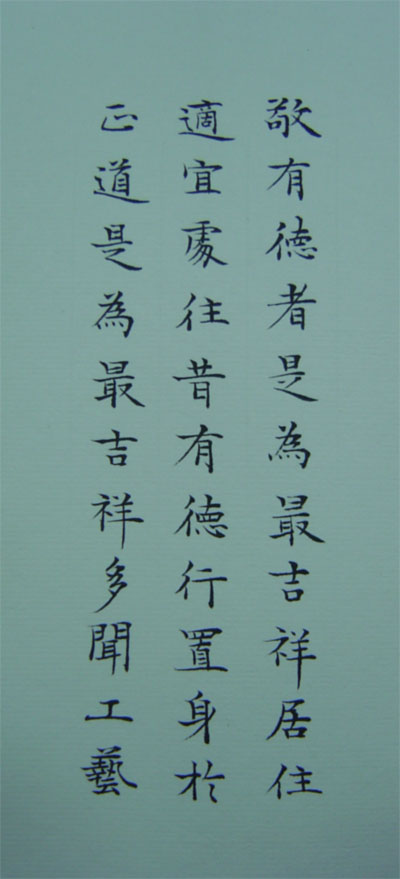 敬有徳者是為最吉祥居住
適宜處往昔有徳行置身於
正道是為最吉祥多聞工藝